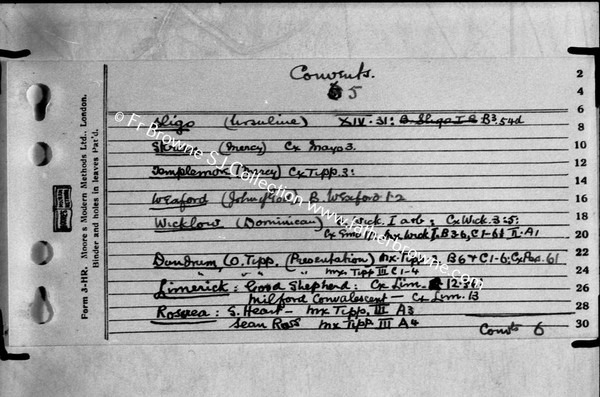 Convents.
5
Sligo (Ursuline) XIV.31: B Sligo I B B3.54d
(Mercy) Cx Mayo 3.
Templemore (Mercy) Cx Tipp. 3:
Wexford B. Wexford 1-2
Wicklow (Dominican) Wick. I a&b; Cx Wick. 3:5:
Cx B3-6, C1-6 II: A1
Dundrum, CO. Tipp. (Presentation) mx. B6 & C1-6; 61
" " " mx. Tipp III C1-4
Limerick: Good Shepherd: Cx Lim.
Milford Convalescent - Cx Lim. 13
Roscrea: S. Heart - mx Tipp. III A3
Sean Ross mx Tipp. III A4
Convts 6
2
4
6
8
10
12
14
16
18
20
22
24
26
28
30
Form J-HR. Moore's Modern Methods Ltd., London.
Binder and holes in leaves Pat'd.
© Fr Browne S.J. Collection www.